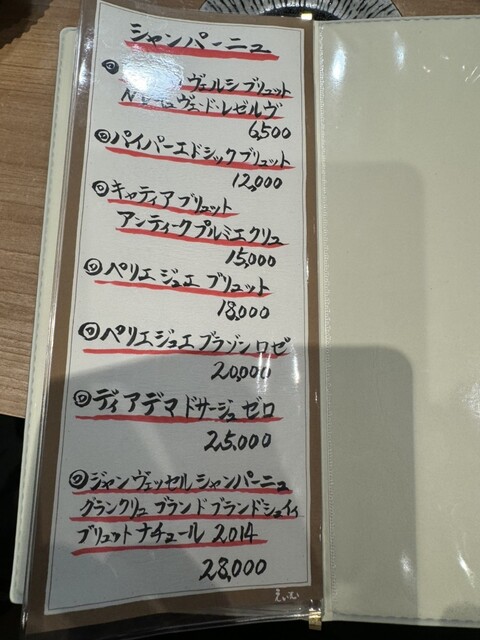 シャンパーニュ
ヴェルシ ブリュット
キュヴェ・ド・レゼルヴ
6,500
パイパーエドシックブリュット
12,000
キャティア ブリュット
アンティーク プルミエクリュ
15,000
ペリエ ジュエ ブリュット
18,000
ペリエジュエ ブラゾン ロゼ
20,000
ディアデマ ドサージュゼロ
25,000
ジャン ヴェッセル シャンパーニュ
グランクリュ ブランド ブランドシュイイ
ブリュット ナチュール 2014
28,000